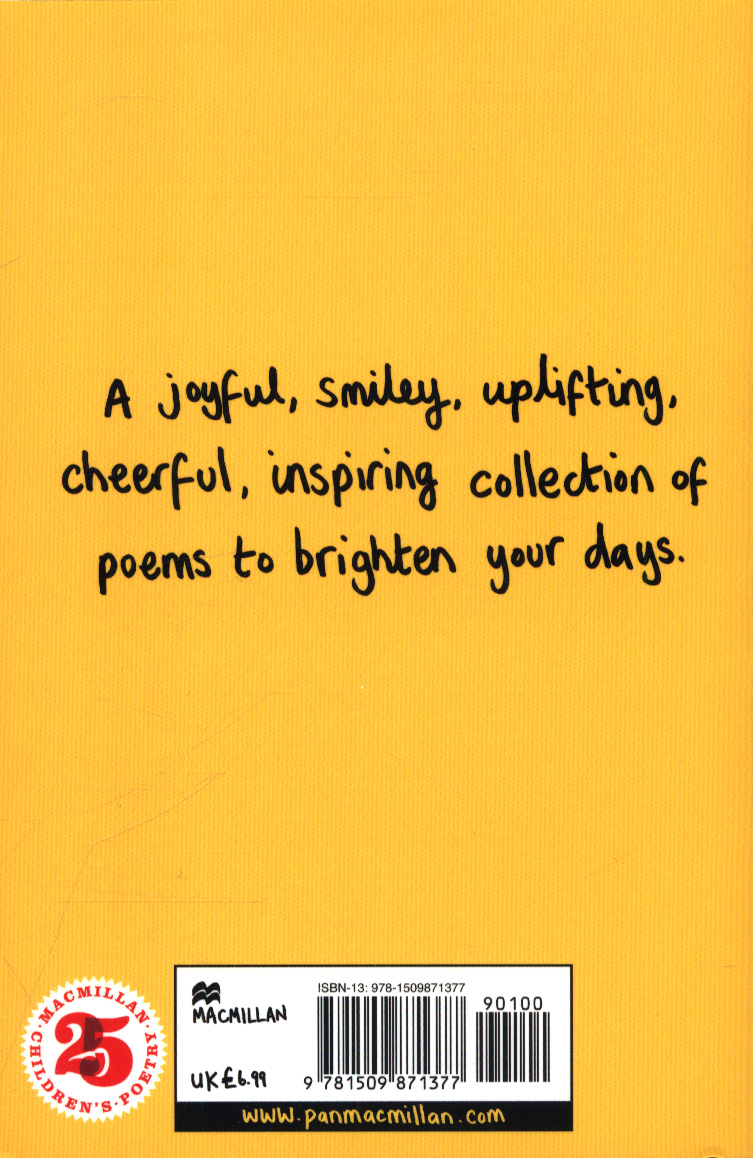 A joyful, smiley, uplifting,
cheerful, inspiring collection of
poems to brighten your days.
·MACMILLAN·
CHILDREN'S·POETRY
25
MACMILLAN
UK£6.99
ISBN-13: 978-1509871377
90100
9 781509 871377
www.panmacmillan.com